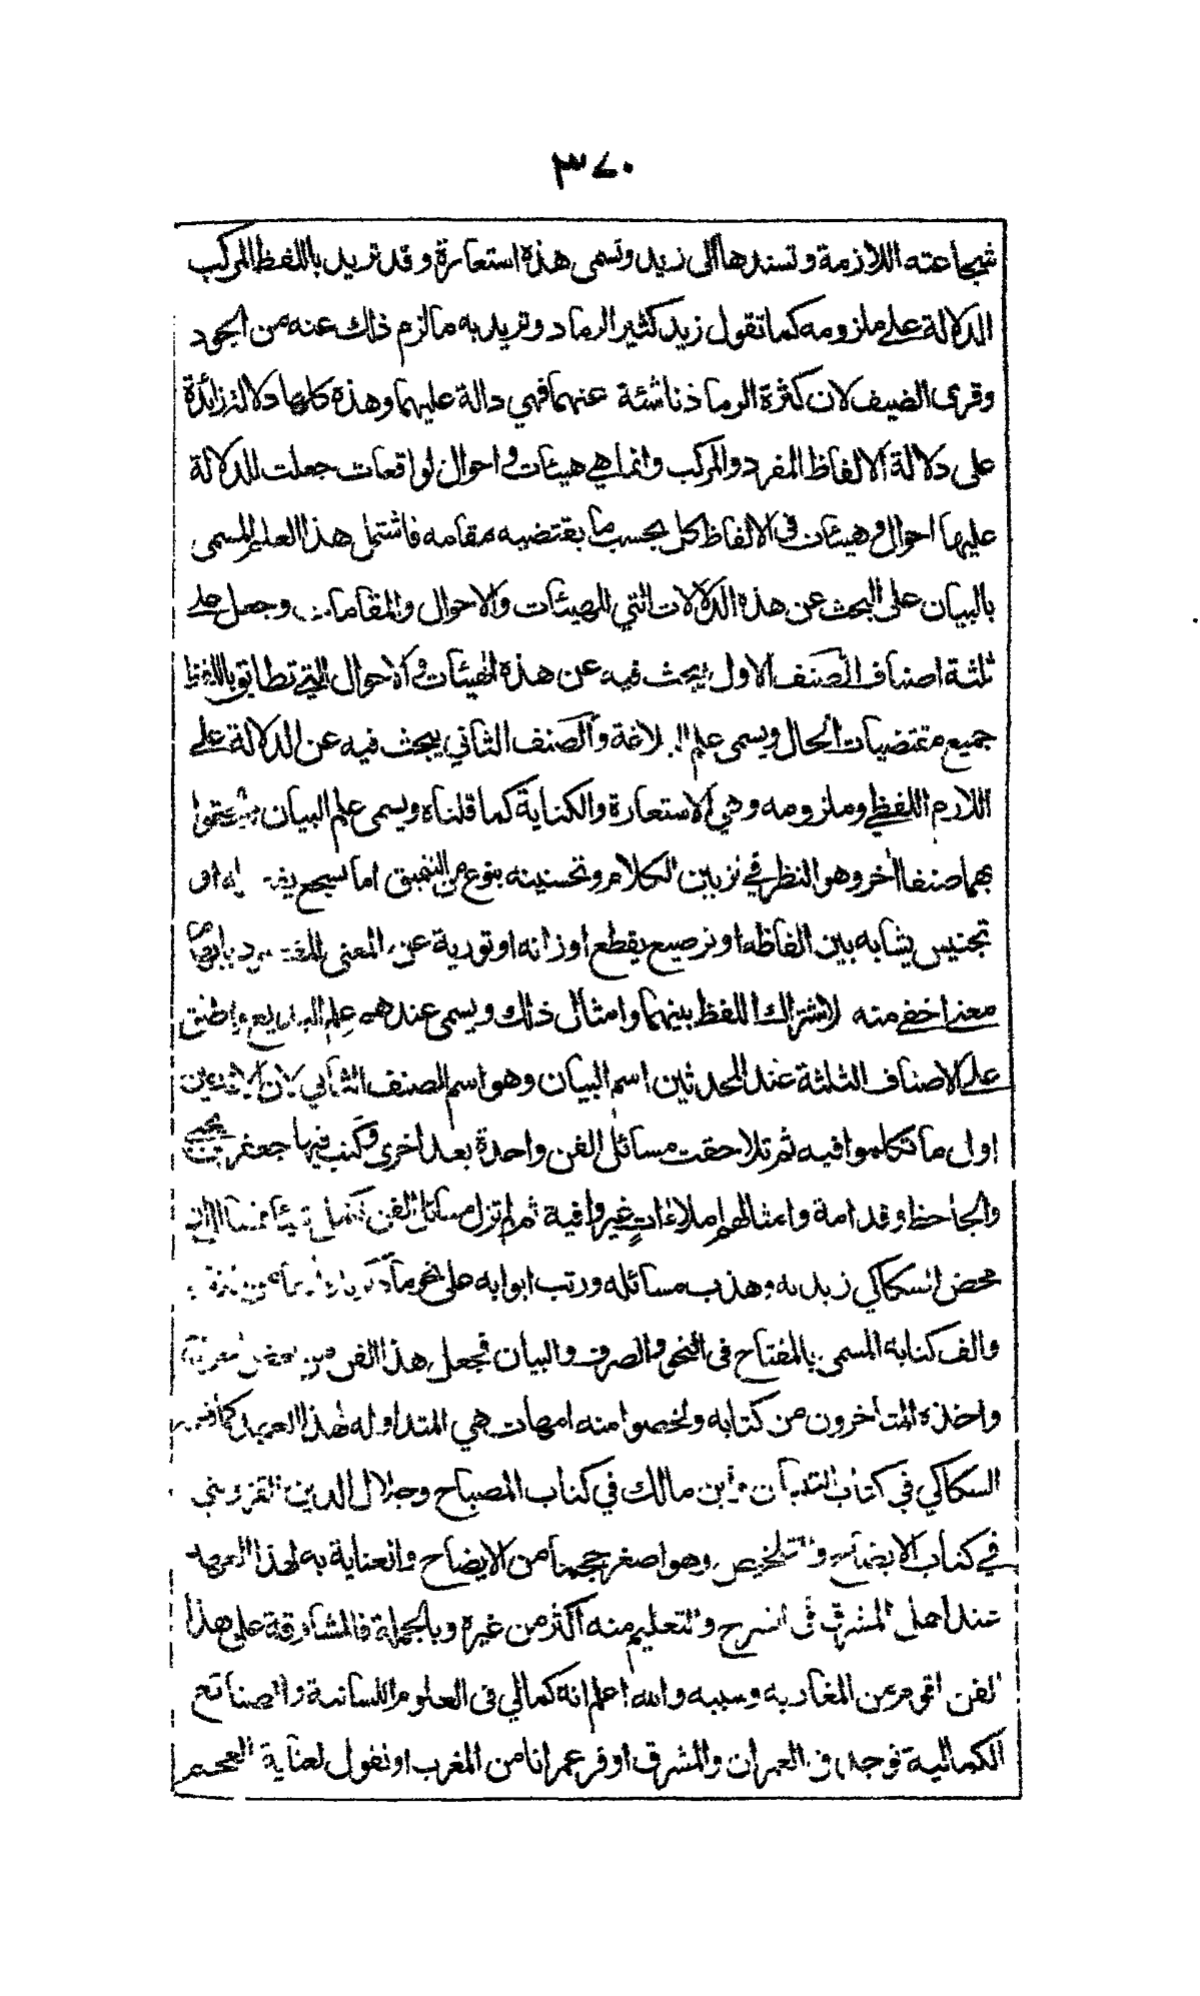 ٣٧٠
شجاعته اللازمة وتسندها الى زيد وتسمى هذه استعارة وقد تريد باللفظ المركب
الدلالة على ملزومه كما تقول زيد كثير الرماد وتريد به ما لزم ذلك عنه من الجود
وقرى الضيف لان كثرة الرماد ناشئة عنهما فهي دالة عليهما وهذه كلها دلالة زائدة
على دلالة الالفاظ المفرد والمركب وانما هي هيئات واحوال لواقعات جعلت للدلالة
عليها احوال وهيئات في الالفاظ كل بحسب ما يقتضيه مقامه فاشتمل هذا العلم المسمى
بالبيان على البحث عن هذه الدلالات التي للهيئات والاحوال والمقامات وجعل على
ثلثة اصناف الصنف الاول يبحث فيه عن هذه الهيئات والاحوال التي تطابق باللفظ
جميع مقتضيات الحال ويسمى علم البلاغة والصنف الثاني يبحث فيه عن الدلالة على
اللازم اللفظي وملزومه وهي الاستعارة والكناية كما قلناه ويسمى علم البيان والحقوا
بهما صنفا اخر وهو النظر في تزيين الكلام وتحسينه بنوع من التنميق اما بسجع يفصله او
تجنيس يشابه بين الفاظه او ترصيع يقطع اوزانه او تورية عن المعنى المقصود بايهام
معنى اخفى منه لاشتراك اللفظ بينهما وامثال ذلك ويسمى عندهم علم البديع واطلق
على الاصناف الثلثة عند المحدثين اسم البيان وهو اسم الصنف الثاني لان الاقدمين
اول ما تكلموا فيه ثم تلاحقت مسائل الفن واحدة بعد اخرى وكتب فيها جعفر بن يحيى
والجاحظ وقدامة وامثالهم املاءات غير وافية ثم لم تزل مسائل الفن تكمل شيئا فشيئا الى ان
محض السكاكي زبدته وهذب مسائله ورتب ابوابه على نحو ما ذكرناه
والف كتابه المسمى بالمفتاح في النحو والصرف والبيان فجعل هذا الفن من بعض اجزائه
واخذه المتاخرون من كتابه ولخصوا منه امهات هي المتداوله لهذا العهد كما فعله
السكاكي في كتاب التبيان وابن مالك في كتاب المصباح وجلال الدين القزويني
في كتاب الايضاح والتلخيص وهو اصغر حجما من الايضاح والعناية به لهذا العهد
عند اهل المشرق في الشرح والتعليم منه اكثر من غيره وبالجملة فالمشارقة على هذا
الفن اقوم من المغاربه وسببه والله اعلم انه كمالي في العلوم اللسانية والصنائع
الكمالية توجد في العمران والمشرق اوفر عمرانا من المغرب او نقول لعناية العجم